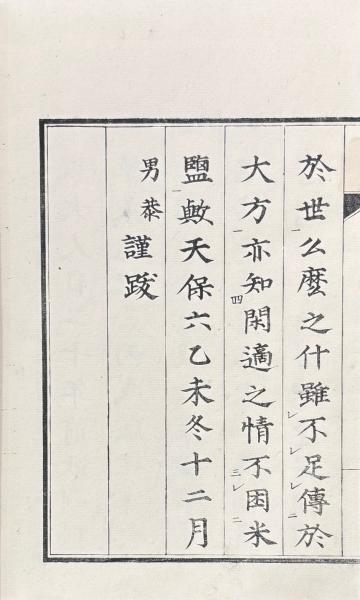 於世么麼之什雖不足傳於
大方亦知閑適之情不困米
鹽歟天保六乙未冬十二月
男恭謹跋